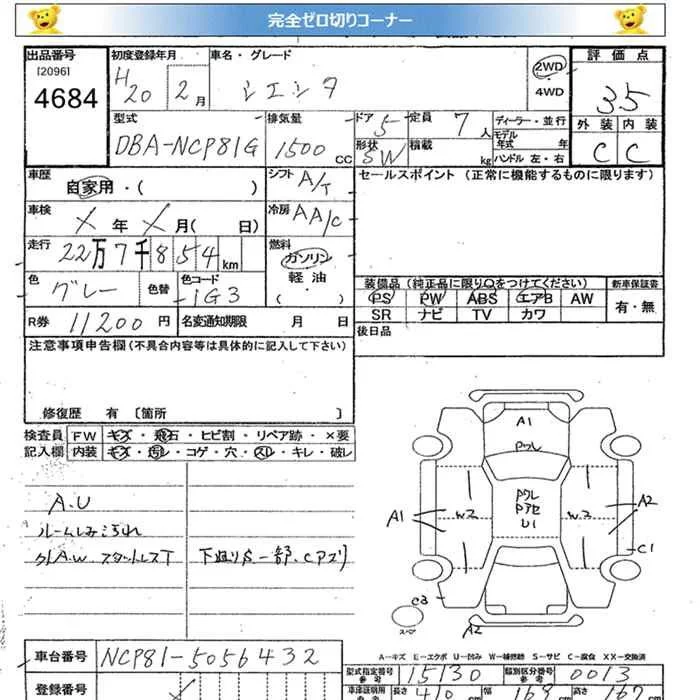 完全ゼロ切りコーナー
出品番号 初度登録年月 車名・グレード 評価点
[2096] H20 2月 シエンタ 2WD 3.5
4684 4WD
外装 内装
型式 排気量 ドア 5 定員 7人 ディーラー・並行
DBA-NCP81G 1500CC 形状 SW 積載 kg モデル年式 年 C C
ハンドル 左・右
車歴 シフト A/T セールスポイント (正常に機能するものに限ります)
自家用・( )
車検 X年X月( 日) 冷房 AA/C
走行 22万7千854km 燃料
ガソリン
軽油
( )
色 グレー 色替 色コード 1G3 装備品 (純正品に限り○をつけてください) 新車保証書
PS PW ABS エアB AW 有・無
SR ナビ TV カワ
R券 11200円 名変通知期限 月 日
後日品
注意事項申告欄(不具合内容等は具体的に記入して下さい)
修復歴 有 〔箇所 〕
検査員 FW キズ・飛石・ヒビ割・リペア跡・×要
記入欄 内装 キズ・汚レ・コゲ・穴・スレ・キレ・破レ
A.U
ルームしみ汚れ
外A.W スタットレスT 下廻りS 一部.C アズリ
A1
Pクレ
Pクレ
Pアセ
U1
A1 W2 W2 A2
C1
C3
スペア
A2
A-キズ E-エクボ U-凹み W-補修跡 S-サビ C-腐食 XX-交換済
車台番号 NCP81-5056432
型式指定番号 参考 15130 類別区分番号 参考 0013
登録番号 車庫証明用 参考 長さ 410 幅 169 高さ 167